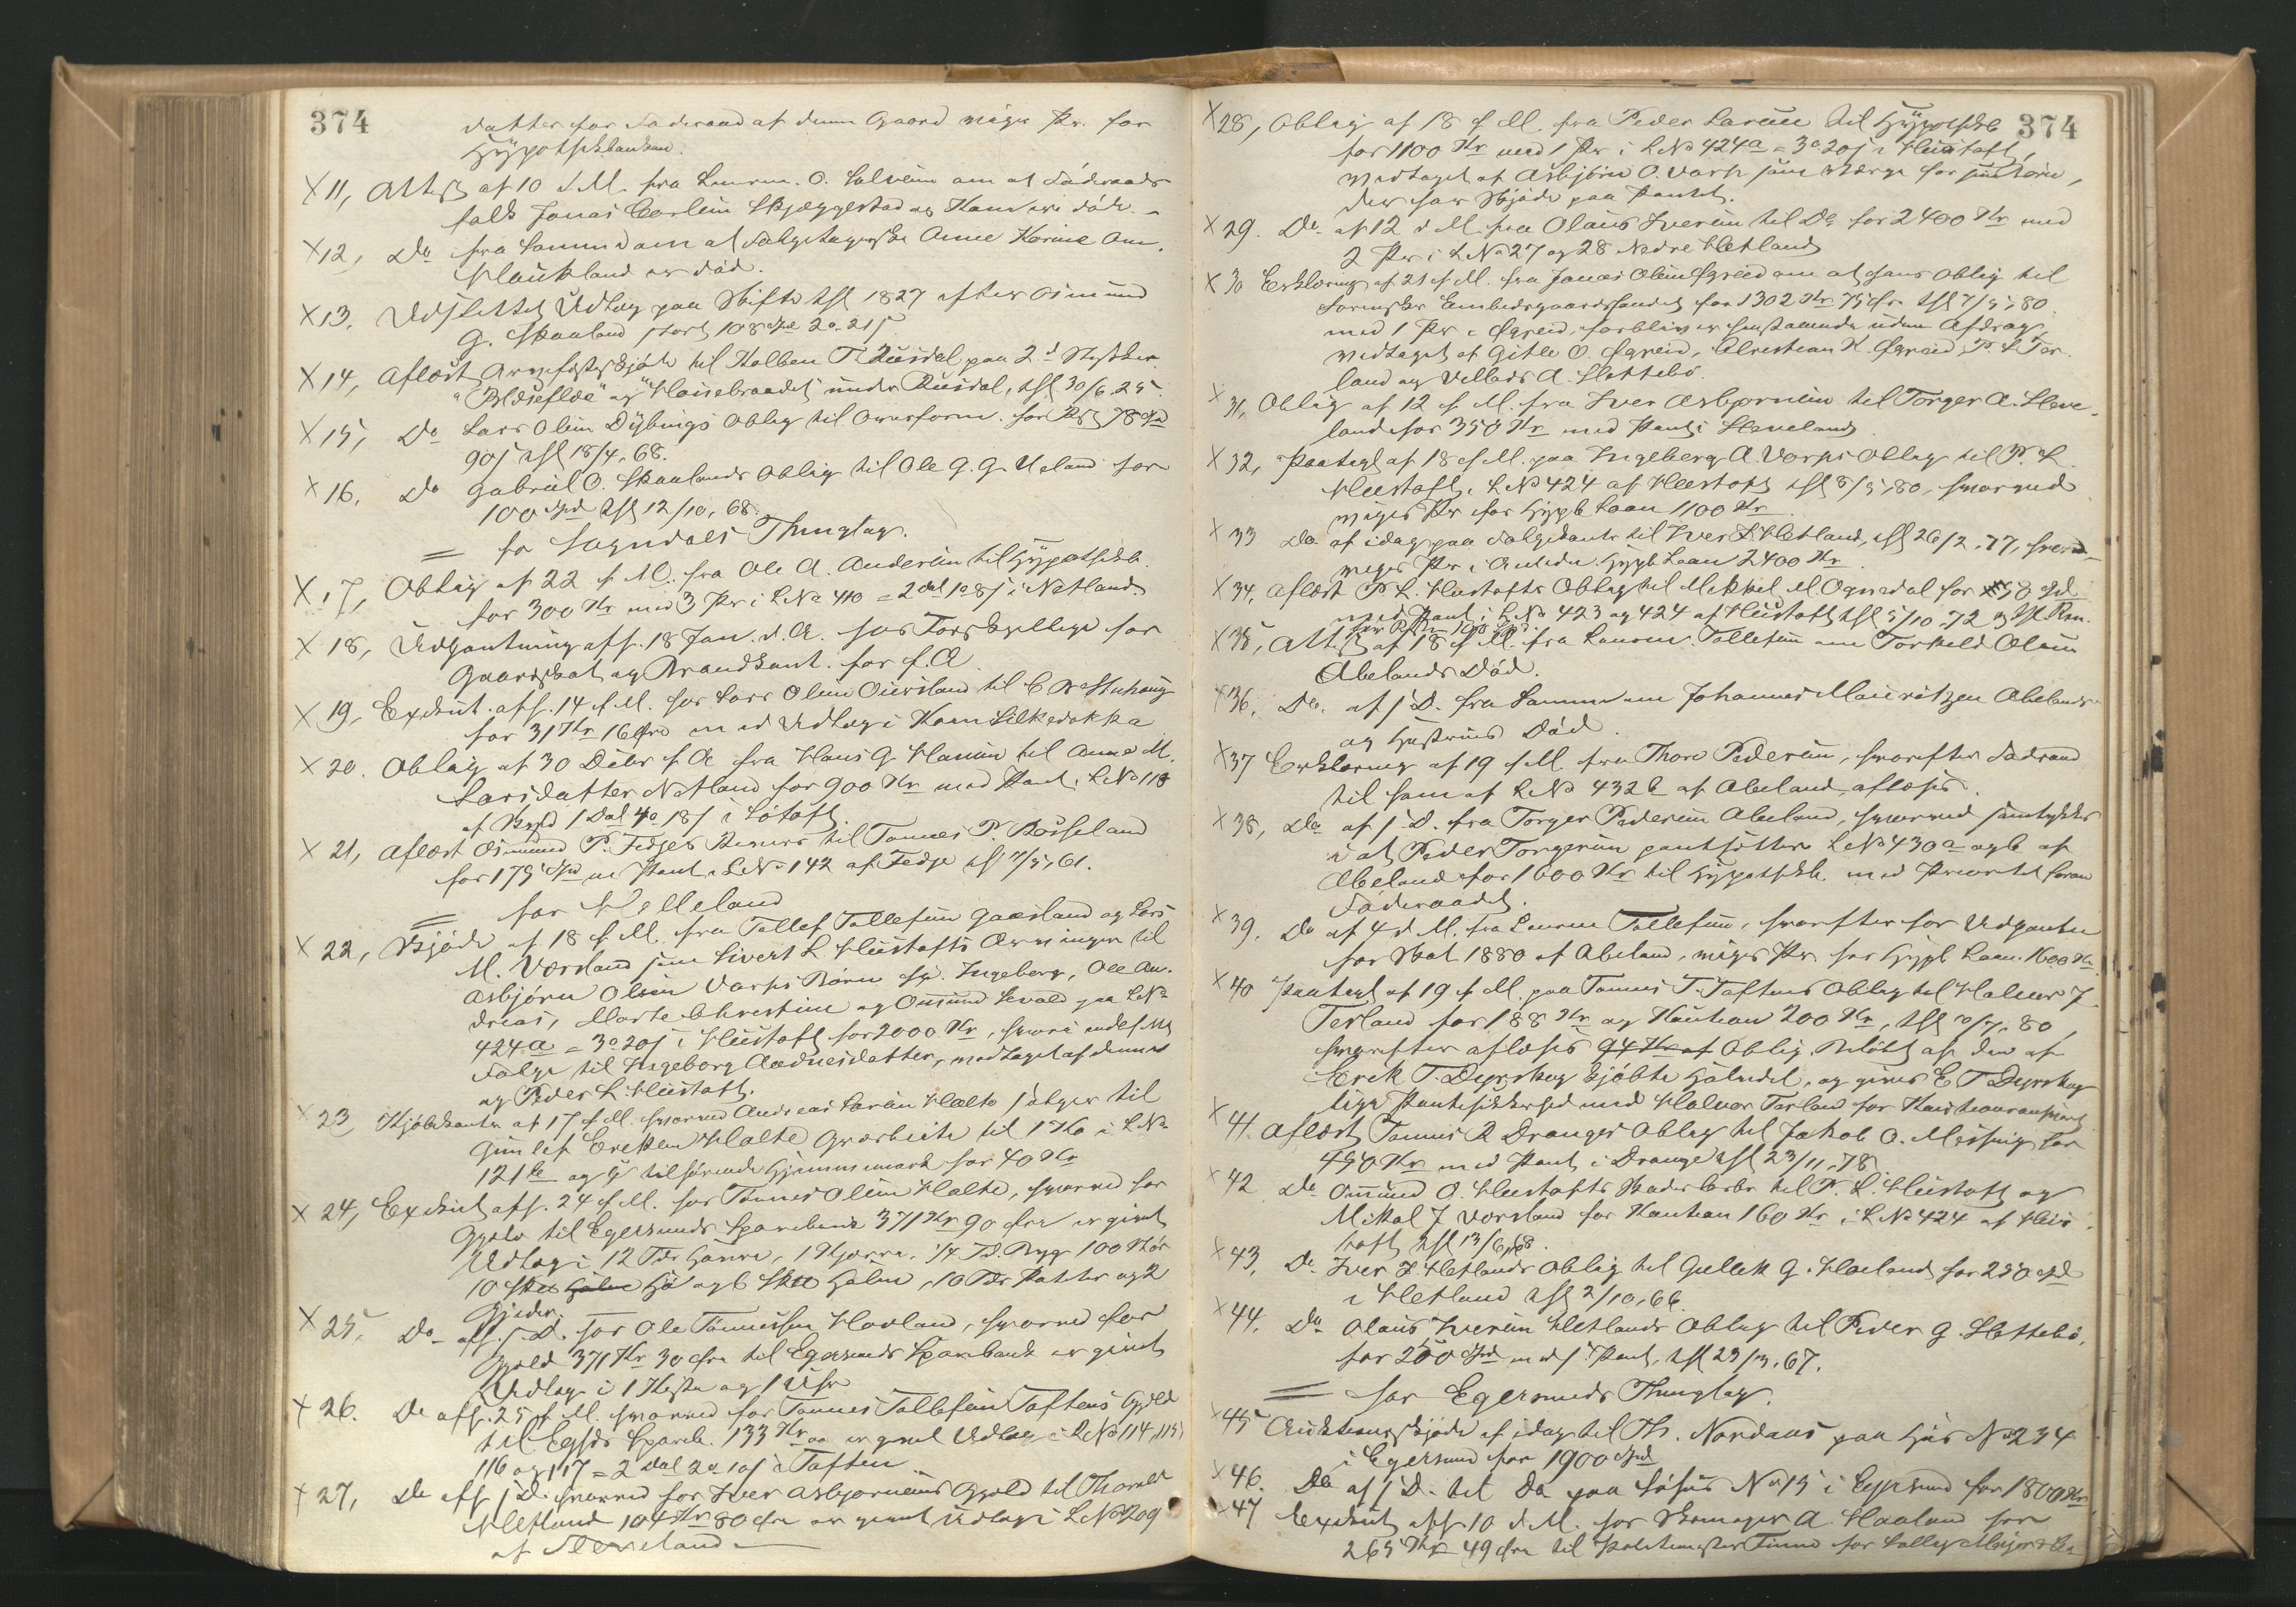 374
datter for Føderaad af denne Gaard viger Pr. for
Hypothekbanken.
X 11, Attest af 10 d. M. fra Lensm. O. Salvesen om at Føderaads-
folk Jonas Carlsen Skjæggestad og Kone ere døde.
X 12, Do fra Samme om at Folgetagerske Anne Karine Om.
Haukland er død.
X 13. Udslettet Udlæg paa Skifte thl 1827 efter Osmund
G. Skaaland stort 108 Spd 2o 21s
X 14, Aflæst Arvefæsteskjøde til Kolben T. Rusdal paa 2d Stykker
"Blaaseflde" og "Hansebraadet" under Rusdal, thl 30/6 25.
X 15, Do Lars Olsen Dybings Oblig til Overform. for Rest 78 Spd
90s thl 18/4. 68.
X 16. Do Gabriel O. Skaalands Oblig til Ole G. G. Ueland for
100 Spd thl 12/10, 68.
= for Sogndals Thinglag.
X 17, Oblig af 22 f. M. fra Ole A. Andersen til Hypothekb.
for 300 Kr med 3 Pr i LNo 410 = 2 dal 1o 8s i Netland
X 18, Udpantning afh. 18 Jan. d. A. hos Fors for
Gaardskat og Brandkont. for f. A.
X 19, Exekut. afh. 14 f. M. hos Lars Olsen Ouesland til C.
for 31 Kr 16 Øre med Udlæg i Koen Silkedokka
X 20. Oblig af 30 Decbr f. A. fra Hans G. Hansen til Anne M.
Larsdatter Netland for 900 Kr med Pant i LNo 118
af Bygd 1 Dal 4o 18s i Løtoft
X 21, Aflæst Osmund P. Fedjes til Tønnes P. Rosseland
for 175 Spd m Pant i LNo 142 af Fedje thl 11/5, 61.
= for Helleland
X 22, Skjøde af 18 f. M. fra Tollef Tollefsen Gaasland og Lars
M. Vorsland som Sivert L. Hustofts Arvinger til
Asbjørn Olsen Varps Børn Ingeborg, Ole An-
dreas, Marte Christine og Omund Sevald paa LNo
424a = 3o 20s i Hustoft for 2000 Kr, hvori indeft
Folge til Ingeborg Aadnesdatter, medtaget af denne
og Peder L. Hustoft.
X 23 Kjøbekontr. af 17 f. M. hvorved Andreas Larsen Hælte sælger til
Gunlef Ereksen Hælte Græsbeite til 1 Ko i LNo
121b og g tilhørende Hjemmemark for 40 Kr
X 24, Exekut afh. 24 f. M. hos Tønnes Olsen Hælte, hvorved for
Gjæld til Egersunds Sparebank 371 Kr 90 Øre er givet
Udlæg i 12 Tdr Havre, 1 Kjærre, 1/4 Td. Byg 100
10 Hø og 6 Halm, 10 Tdr Poteter og 2
Gjeder.
X 25, Do afh. s. D. hos Ole Tønnesen Hovland, hvorved for
Gjæld 371 Kr 30 Øre til Egersunds Sparebank er givet
Udlæg i 1 Hest og 1 Uhr
X 26. Do afh. 25 f. M. hvorved for Tønnes Tollefsen Toftens Gjæld
til Eghds Spareb. 133 Kr er givet Udlæg i LNo 114, 115,
116 og 117 = 2 Dal 2o 10s i Toften
X 27, Do afh. s. D. hvorved for Iver Asbjørnsens Gjæld til Thorvald
Hetland 104 Kr 80 Øre er givet Udlæg i LNo 209
af Sleveland
374
X 28, Oblig af 18 f. M. fra Peder Larsen til Hypothekb
for 1100 Kr med 1 Pr i LNo 424a = 3o 20s i Hustoft,
medtaget af Asbjørn O. Varp som Værge for sine Børn,
der har Skjøde paa Pantet.
X 29. Do af 12 d. M. fra Olaus Iversen til Do for 2400 Kr med
2 Pr i LNo 27 og 28 Nedre Hetland
X 30 Erklæring af 21 f. M. fra Jonas Olsen Øgreid om at hans Oblig til
Sorenskr. Embedsgaardsfondet for 1302 Kr 75 Øre thl 7/5. 80.
med 1 Pr i Øgreid, forbliver henstaaende uden Afdrag,
medtaget af Gitle O. Øgreid, Christian H. Øgreid, P. L. Tor-
land og Vellads A. Slettebø.
X 31, Oblig af 12 f. M. fra Iver Asbjørnsen til Torger A. Sleve-
land for 350 Kr med Pant i Sleveland
X 32, Paategn af 18 f. M. paa Ingeborg A. Varps Oblig til P. L.
Hustoft, i LNo 424 af Hustoft thl 8/5, 80, hvorved
viger Pr for Hypb Laan 1100 Kr
X 33 Do af idag paa Folgekontr til Iver I. Hetland, thl 26/2. 77, hvorved
viger Pr i Anledn. Hypb Laan 2400 Kr
X 34, Aflæst P. L. Hustofts Oblig til Mikkel M. Ognedal for 58 Spd
med Pant i LNo 423 og 424 af Hustoft thl 5/10. 72
X 35, Attest af 18 f. M. fra Lensm. Tollefsen om Torkeld Olsen
Abelands Død.
X 36, Do. af s. D. fra Samme om Johannes Mauritzen Abelands
og Hustrues Død.
X 37 Erklæring af 19 f. M. fra Thore Pedersen, hvorefter Føderaad
til ham af LNo 432b af Abeland afløses.
X 38, Do af s. D. fra Torger Pedersen Abeland, hvorved samtykkes
i at Peder Torgersen pantsætter LNo 430a og b af
Abeland for 1600 Kr til Hypothekb. med Prioritet foran
Føderaadet.
X 39. Do af 4 d. M. fra Lensm. Tollefsen, hvorefter for Udpantn
for Skat 1880 af Abeland, viges Pr. for Hypb Laan. 1600 Kr
X 40 Paategn af 19 f. M. paa Tønnes T. Toftens Oblig til Halvor J.
Terland for 188 Kr og Kaution 200 Kr, thl 10/7. 80,
hvorefter afløses 94 Kr af Oblig. Beløbet af den af
Erik T. Dyrskog kjøbte Halvdel, og gives E. T. Dyrskog
lige Pantesikkerhed med Halvor Terland for Kautionsansvar
X 41. Aflæst Tønnes R. Dranges Oblig til Jakob O. Messing for
450 Kr med Pant i Drange thl 23/11. 78
X 42 Do Omund O. Hustofts til P. L. Hustoft og
Mikal J. Vorsland for Kaution 160 Kr i LNo 424 af Hus-
toft thl 13/6, 68.
X 43, Do Iver I. Hetlands Oblig til Gullek G. Hæland for 250 Spd
i Hetland thl 2/10, 66.
X 44. Do Olaus Iversen Hetlands Oblig til Peder G. Slettebø,
for 200 Spd med s. Pant, thl 23/3. 67.
= for Egersunds Thinglag.
X 45 Auktionsskjøde af idag til Th. Nordaas paa Hus No 234
i Egersund for 1900 Spd
X 46. Do af s. D. til Do paa Søhus No 15 i Egersund for 1800 Kr
X 47 Exekut afh. 10 d. M. hos Skomager A. Haaland for
265 Kr 49 Øre til Politimester Finne for